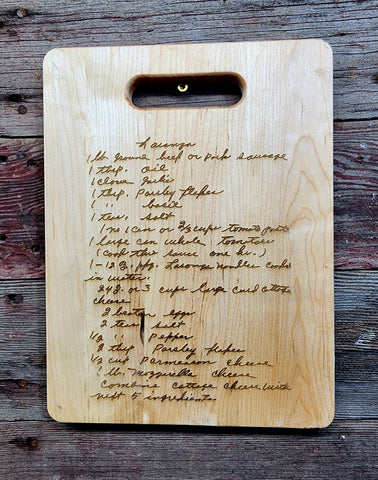 Lasagna
1 lb. Ground beef or Pork sausage
1 tbsp. oil
1 clove Garlic
1 tbsp. Parsley flakes
1 " basil
1 tea. salt
1 no 1 can or 2/3 cups tomato paste
1 large can whole tomatoes
(Cook this sauce one hr.)
1 - 12 oz. pkg. Lasagna noodles cooked
in water.
24 oz. or 3 cups large curd cottage
cheese
2 beaten eggs
2 tea. salt
1/2 " Pepper
2 tbsp. Parsley flakes
1/2 cup Parmesan cheese
1 lb. Mozzarella cheese
Combine cottage cheese with
next 5 ingredients